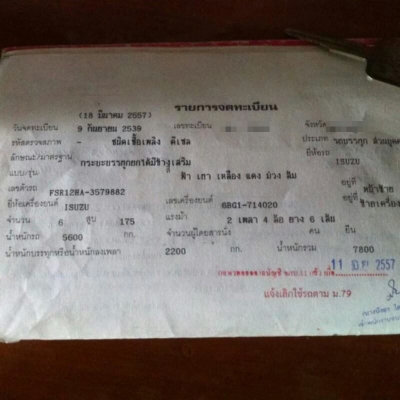 รายการจดทะเบียน
(18 มีนาคม 2557)
วันจดทะเบียน 9 กันยายน 2539 เลขทะเบียน จังหวัด
รหัสตรวจสภาพ - ชนิดเชื้อเพลิง ดีเซล ประเภท รถบรรทุก ส่วนบุคคล
ลักษณะ/มาตรฐาน กระบะบรรทุกยกได้มีข้างเสริม ยี่ห้อรถ ISUZU
แบบ/รุ่น ฟ้า เทา เหลือง แดง ม่วง ส้ม
เลขตัวรถ FSR12HA-3579882 อยู่ที่ หน้าซ้าย
ยี่ห้อเครื่องยนต์ ISUZU เลขเครื่องยนต์ 6BG1-714020 อยู่ที่ ซ้ายเครื่อง
จำนวน 6 สูบ 175 แรงม้า 2 เพลา 4 ล้อ ยาง 6 เส้น
น้ำหนักรถ 5600 กก. จำนวนผู้โดยสารนั่ง คน ยืน
น้ำหนักบรรทุกหรือน้ำหนักลงเพลา 2200 กก. น้ำหนักรวม 7800
11 2557
แจ้งเลิกใช้รถตาม ม.79